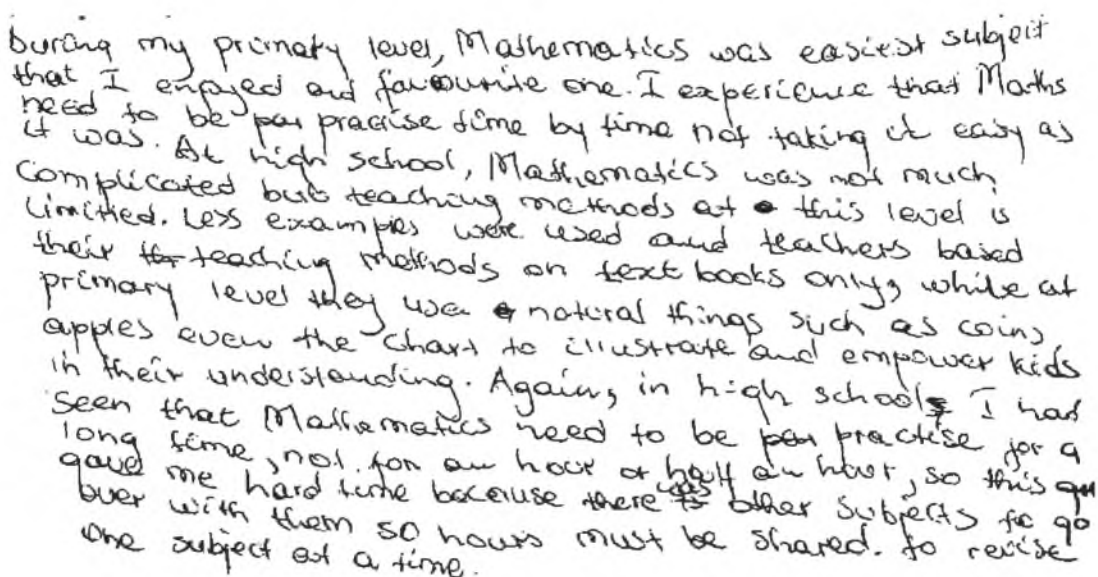 During my primary level, Mathematics was easiest subject
that I enjoyed and favourite one. I experience that Maths
need to be practise time by time not taking it easy as
it was. At high school, Mathematics was not much
complicated but teaching methods at this level is
limitied. Less examples were used and teachers based
their teaching methods on text books only, while at
primary level they use natural things such as coins,
apples even the chart to illustrate and empower kids
in their understanding. Again, in high school, I had
seen that Mathematics need to be practise for a
long time, not for an hour or half an hour, so this
gave me hard time because there was other subjects to go
over with them so hours must be shared. to revise
one subject at a time.